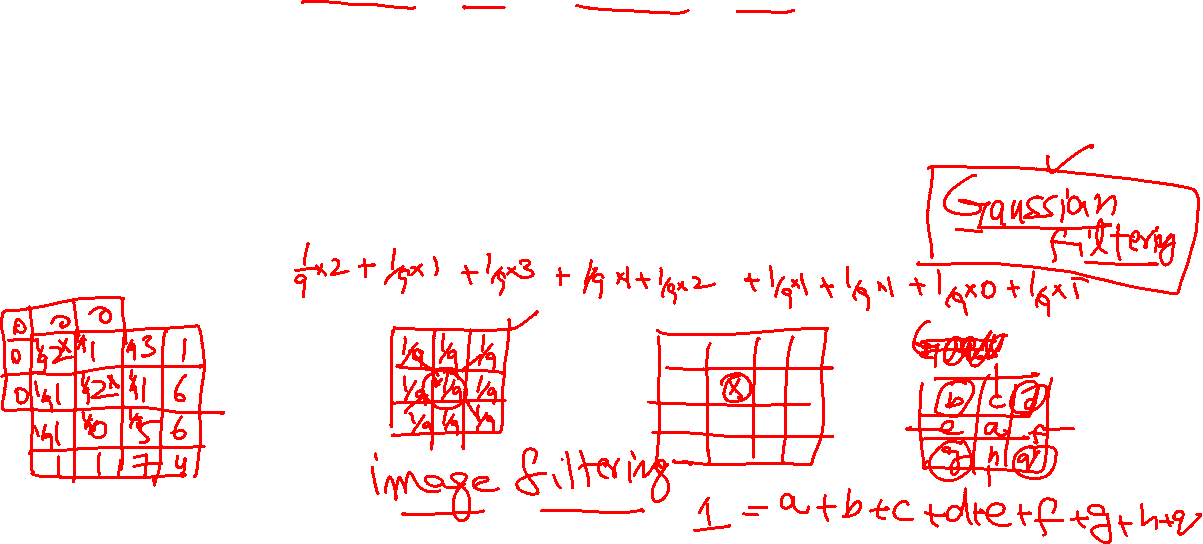 Gaussian
filtering
1/9×2 + 1/9×1 + 1/9×3 + 1/9×1 + 1/9×2 + 1/9×1 + 1/9×1 + 1/9×0 + 1/9×5
0 0 0
0 1/9 2× 1/9 1 1/9 3 1
0 1/9 1 1/9 2× 1/9 1 6
1/9 1 1/9 0 1/9 5 6
1 1 7 4
1/9 1/9 1/9
1/9 1/9 1/9
1/9 1/9 1/9
x
b c d
e a f
g h q
image filtering
1 = a+b+c+d+e+f+g+h+q